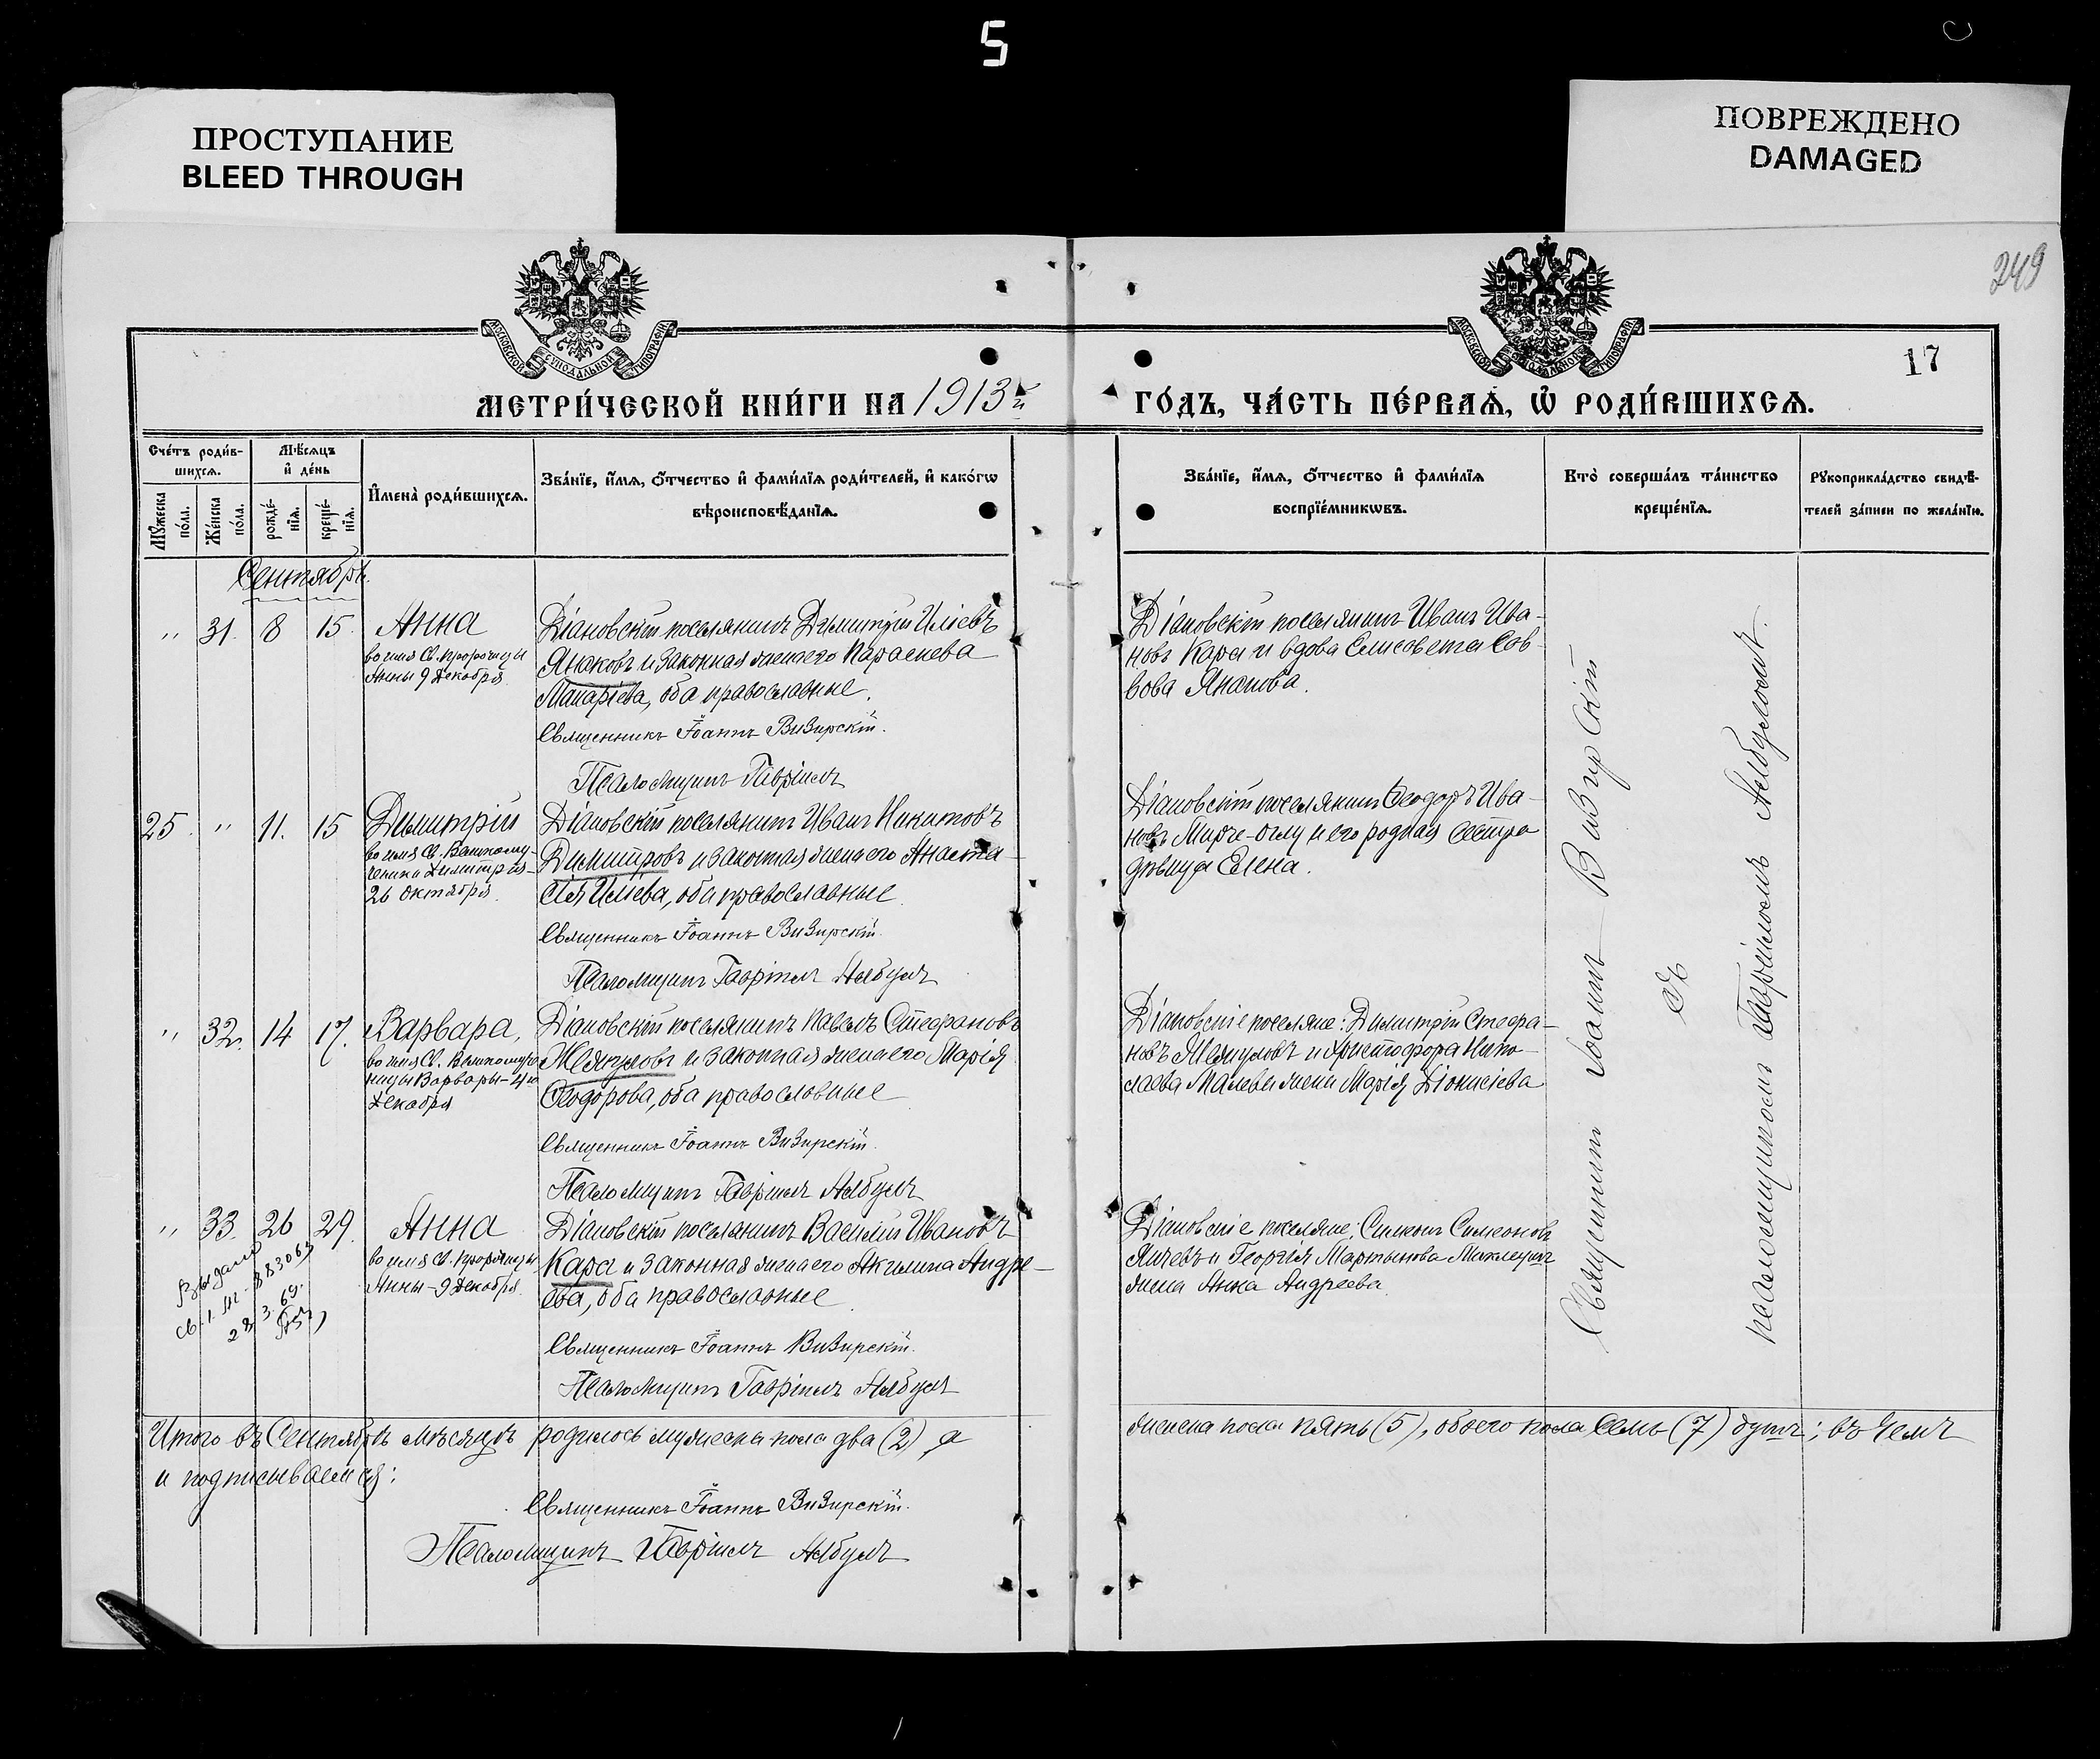 5
ПРОСТУПАНИЕ
BLEED THROUGH
ПОВРЕЖДЕНО
DAMAGED
249
МОСКОВСКОЙ СѴНОДАЛЬНОЙ ТИПОГРАФІИ
МОСКОВСКОЙ СѴНОДАЛЬНОЙ ТИПОГРАФІИ
17
МЕТРИ́ЧЕСКОЙ КНИ́ГИ НА 1913й
ГО́ДЪ, ЧА́СТЬ ПЕ́РВАѦ, Ѡ҆ РОДИ́ВШИХСѦ.
Сче́тъ роди́в-
шихсѧ.
Мѣ́сѧцъ
и҆ де́нь
Мꙋ́жеска
по́ла.
Же́нска
по́ла.
рожде́-
нїѧ.
креще́-
нїѧ.
И҆мена̀ роди́вшихсѧ.
Зва́нїе, и҆́мѧ, ѻ҆́тчество и҆ фами́лїѧ роди́телей, и҆ како́гѡ
вѣроисповѣ́данїѧ.
Зва́нїе, и҆́мѧ, ѻ҆́тчество и҆ фами́лїѧ
воспрїе́мникѡвъ.
Кто̀ соверша́лъ та́инство
креще́нїѧ.
Рꙋкоприкла́дство свидѣ́-
телей за́писи по жела́нїю.
Сентябрь.
" 31. 8 15. Анна
во имя Св. пророчицы
Анны 9 Декабря
Діановскій поселянинъ Дѵмитрій Иліевъ
Янаковъ и законная жена его Параскева
Макаріева, оба православные.
Священникъ Іоаннъ Визирскій.
Псаломщикъ Гавріилъ
Діановскій поселянинъ Иванъ Ива-
новъ Кара и вдова Елисавета Сав-
вова Янакова.
25 " 11. 15 Дѵмитрій
во имя Св. Великому-
ченика Димитрія-
26 октября.
Діановскій поселянинъ Иванъ Никитовъ
Димитровъ и законная жена его Анаста-
сія Иліева, оба православные.
Священникъ Іоаннъ Визирскій.
Псаломщикъ Гавріилъ Албулъ
Діановскій поселянинъ Ѳеодоръ Ива-
новъ Мирче-оглу и его родная сестра
дѣвица Елена.
" 32. 14 17. Варвара,
во имя Св. Великомуче
ницы Варвары-4го
Декабря
Діановскій поселянинъ Павелъ Стефановъ
Желяповъ и законная жена его Марія
Ѳеодорова, оба православные
Священникъ Іоаннъ Визирскій.
Псаломщикъ Гавріилъ Албулъ
Діановскіе поселяне: Димитрій Стефа-
новъ и Христофора Нико-
лаева жена Марія Діонисіева
" 33. 26 29. Анна
во имя Св. пророчицы
Анны-9 Декабря.
Выдано
28.3.69.
Діановскій поселянинъ Василій Ивановъ
Кара и законная жена его Акилина Андре-
ева, оба православные.
Священникъ Іоаннъ Визирскій.
Псаломщикъ Гавріилъ Албулъ
Діановскіе поселяне: Симеонъ Симеоновъ
и Георгія Мартынова
жена Анна Андреева.
Священникъ Іоаннъ Визирскій
съ
псаломщикомъ Гавріиломъ Албуломъ.
Итого въ Сентябрѣ мѣсяцѣ родилось мужеска пола два (2), а
женска пола пять (5), обоего пола семь (7) душъ; въ чемъ
и подписываемся:
Священникъ Іоаннъ Визирскій.
Псаломщикъ Гавріилъ Албулъ